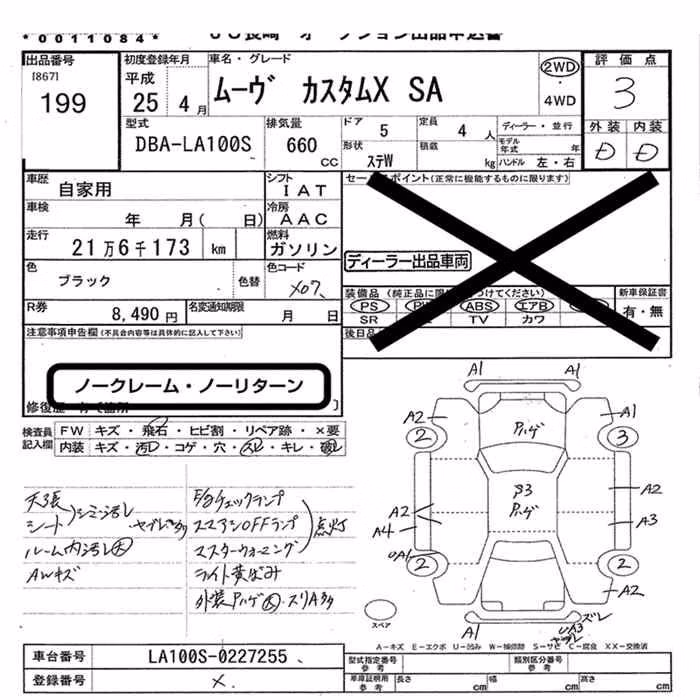 *0011084*
出品番号
[867]
199
初度登録年月
平成
25 4月
車名・グレード
ムーヴ カスタムX SA
2WD
・
4WD
評価点
3
外装 内装
D D
型式
DBA-LA100S
排気量
660
cc
ドア 5
定員 4 人
形状
ステW
積載
kg
ディーラー・並行
モデル
年式 年
ハンドル 左・右
車歴
自家用
シフト
IAT
車検
年 月( 日)
冷房
AAC
走行
21万6千173 km
燃料
ガソリン
色
ブラック
色替
色コード
X07
R券
8,490円
名変通知期限
月 日
セー ポイント(正常に機能するものに限ります)
ディーラー出品車両
装備品(純正品に限 つけてください)
PS ABS エアB
SR TV カワ
新車保証書
有・無
後日品
注意事項申告欄(不具合内容等は具体的に記入して下さい)
ノークレーム・ノーリターン
検査員
記入欄
FW キズ・飛石・ヒビ割・リペア跡・×要
内装 キズ・汚レ・コゲ・穴・スレ・キレ・破レ
天張
シート
シミ汚レ
ルーム内汚レ大
AWキズ
E/gチェックランプ
スマアシOFFランプ
マスターウォーニング
点灯
ライト黄ばみ
外装Pハゲ大・スリA多
A1 A1
A2 A1
Pハゲ
2 3
β3
Pハゲ
A2
A4
A2
A3
UA1
2 2
A2
A1
UA3
ズレ
スペア
A-キズ E-エクボ U-凹み W-補修跡 S-サビ C-腐食 XX-交換済
車台番号
LA100S-0227255
登録番号
×
型式指定番号
参考
類別区分番号
参考
車庫証明用
参考
長さ cm
幅 cm
高さ cm